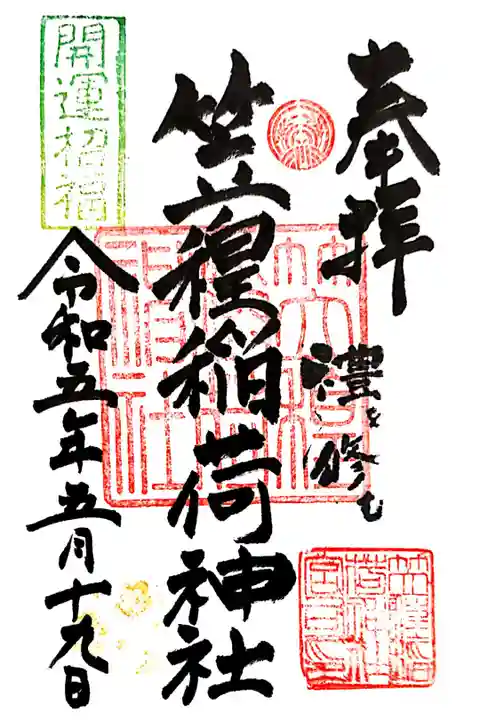 奉拝
禮を修む
笠䅣稲荷神社
開運招福
令和五年五月十九日